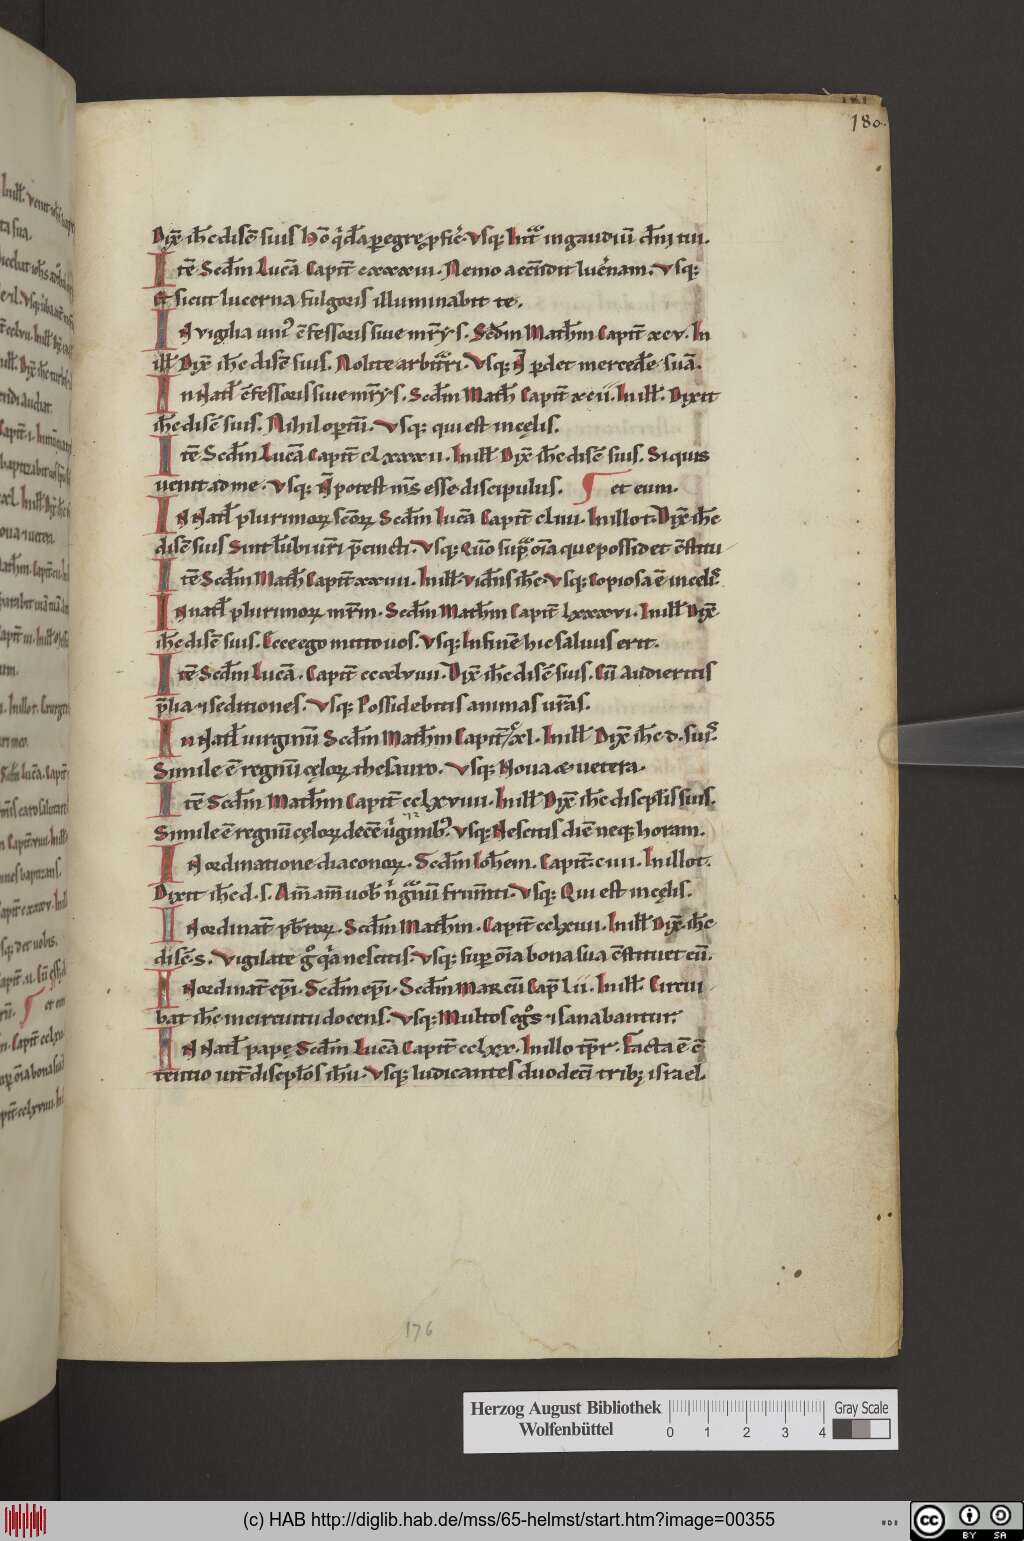 180.
Dix̄ ih̄c discīs suis hō q̇dā peregre ꝓficī. Vsq; Intͣ in gaudiū dn̄i tui.
Itē Scd̄m Lucā Capit̄ cxxxxiii. Nemo accendit lucernam. Vsq;
Et sicut lucerna fulgoris illuminabit te.
In vigilia uniꝰ c̄fessoris siue mr̄ẏs. Scd̄m Math̄m Capit̄ xcv. In
ill̄ Dix̄ ih̄c discīs suis. Nolite arbitͣri. Vsq; N̄ ꝑdet mercedē suā.
In Natl̄ c̄fessoris siue mr̄ẏs. Scd̄m Math̄ Capit̄ xcii. In ill̄. Dixit
ih̄c discīs suis. Nihil optū. Vsq; qui est in cęlis.
Itē Scd̄m Lucā Capit̄ clxxxii. In ill̄ Dix̄ ih̄c discīs suis. Si quis
uenit ad me. Vsq; N̄ potest m̄s esse discipulus. et eum.
In Natl̄ plurimoꝝ sc̄oꝝ Scd̄m Lucā Capit̄ cliiii. In illo t. Dix̄ ih̄c
discīs suis Sint lūbi ur̄i p̄cincti. Vsq; Qm̄o supͣ oīa que possidet c̄stitu
Itē Scd̄m Math̄ Capit̄ xxiiii. In ill̄. Vidēns ih̄c. Vsq; Copiosa ē in celis.
In natl̄ plurimoꝝ mr̄m. Scd̄m Math̄m Capit̄ lxxxxvi. In ill̄ Dix̄
ih̄c discīs suis. Ecce ego mitto uos. Vsq; In finē hic saluus erit.
Itē Scd̄m Lucā. Capit̄ ccclviiii. Dix̄ ih̄c discīs suis. Cū audieritis
p̄lia ⁊ seditiones. Vsq; Possidebitis animas ur̄as.
In Natl̄ uirginū Scd̄m Math̄m Capit̄ cxl. In ill̄ Dix̄ ih̄c d. suis.
Simile ē regnū cęloꝝ thesauro. Vsq; Noua ⁊ uetera.
Itē Scd̄m Math̄m Capit̄ cclxviiii. In ill̄ Dix̄ ih̄c discipl̄is suis.
Simile ē regnū cęloꝝ decē uirginibꝰ. Vsq; Nescitis diē neq; horam.
In ordinatione diaconoꝝ. Scd̄m Ioh̄em. Capit̄. ciiii. In illo t.
Dixit ih̄c d. s. Am̄ am̄ uob̄ n̄ gͣnū frum̄ti. Vsq; Qui est in cęlis.
In ordinat̄ pb̄roꝝ. Scd̄m Math̄m. Capit̄ cclxiiii. In ill̄ Dix̄ ih̄c
discīs. Vigilate gͦ qͥa nescitis. Vsq; sup oīa bona sua c̄stituet eū.
In ordinat̄ ep̄i. Scd̄m ep̄i. Scd̄m Marcū Cap̄ lii. In ill̄. Circui
bat ih̄c in circuitu docens. Vsq; Multos egͦs ⁊ sanabantur.
In Natl̄ papę Scd̄m Lucā Capit̄ cclxx. In illo tp̄r. Facta ē c̄
tentio int̄ discipl̄os ih̄u. Vsq; Iudicantes duodecī tribꝫ israel.
176
Herzog August Bibliothek
Wolfenbüttel
0 1 2 3 4
Gray Scale
(c) HAB http://diglib.hab.de/mss/65-helmst/start.htm?image=00355
cc BY SA